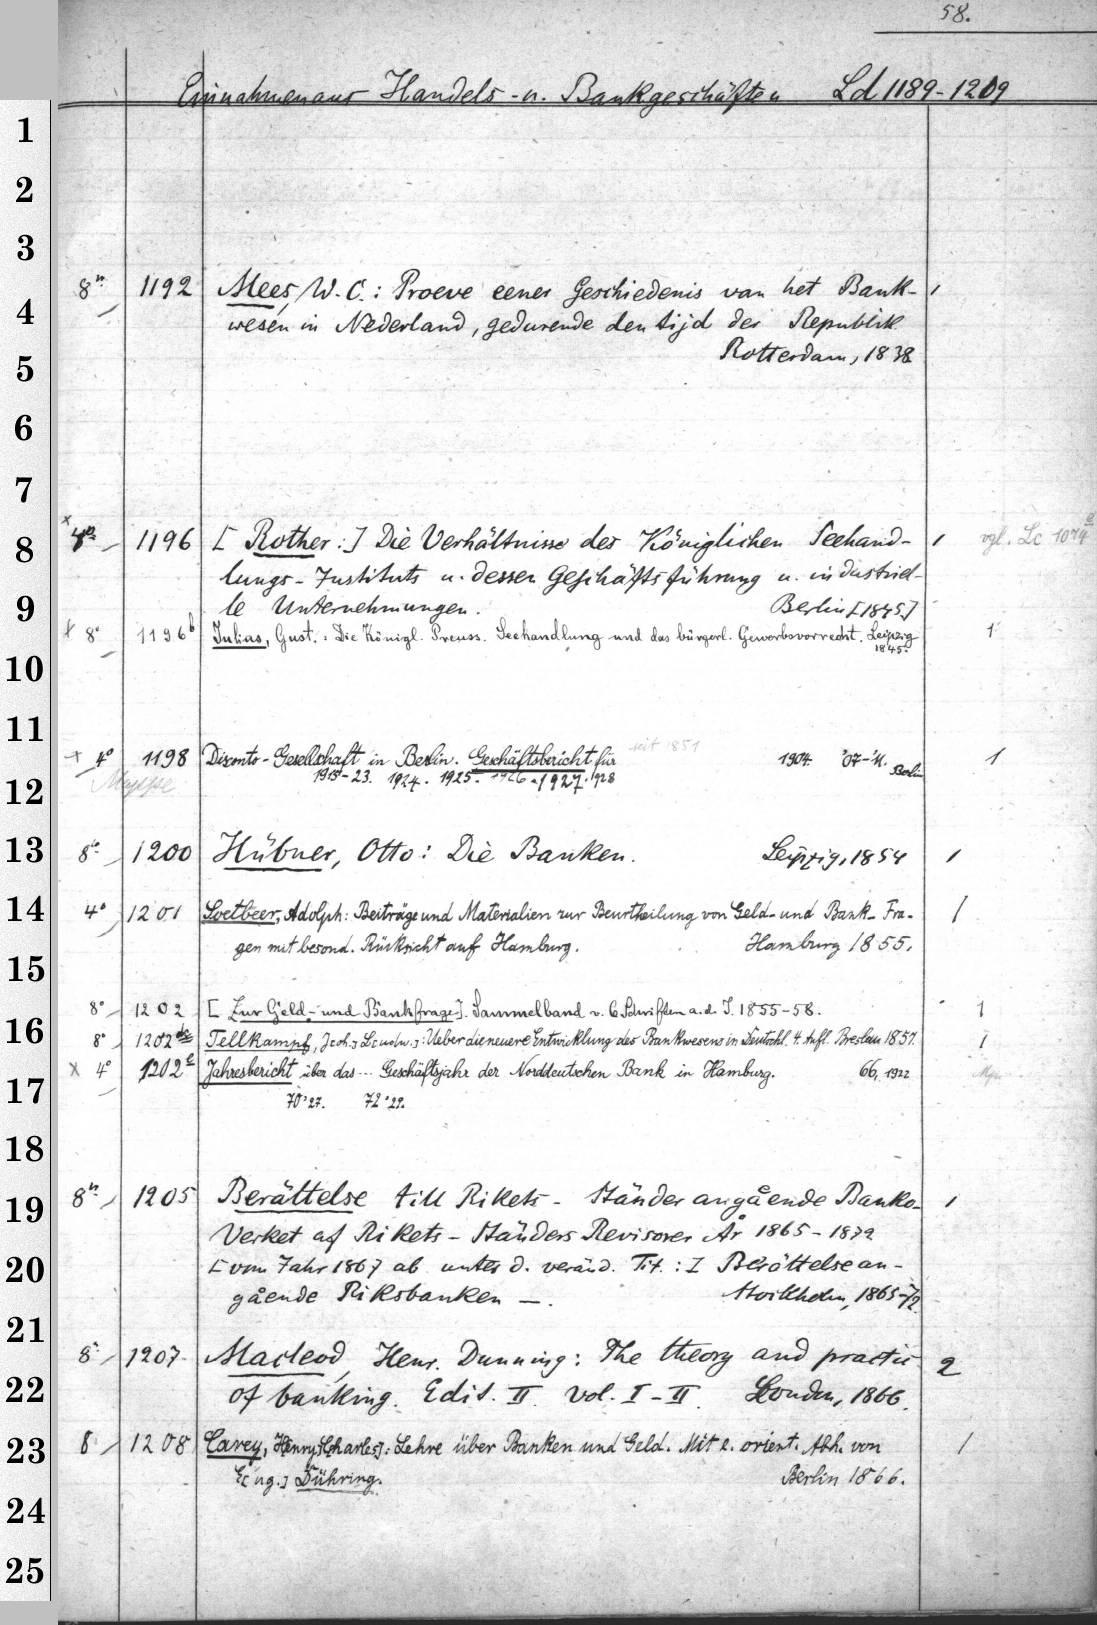 58.
Einnahmen aus Handels- u. Bankgeschäften Ld 1189-1209
1
2
3
8° 1192 Mees, W. C.: Proeve eener Geschiedenis van het Bank- 1
4 wesen in Nederland, gedurende den tijd der Republik
Rotterdam, 1838
5
6
7
8 8° 1196 [Rother:] Die Verhältnisse des Königlichen Seehand- 1 vgl. Lc 1074
lungs-Instituts u. dessen Geschäftsführung u. industriel-
9 le Unternehmungen. Berlin [1845]
x 8° 1196b Julius, Gust.: Die Königl. Preuss. Seehandlung und das bürgerl. Gewerbsvorrecht. Leipzig 1
1845.
10
11
x 4° 1198 Disconto-Gesellschaft in Berlin. Geschäftsbericht für seit 1851 1904. '07-'11. Berlin 1
12 1915-23. 1924. 1925 1926. 1927. 1928
13 8° 1200 Hübner, Otto: Die Banken. Leipzig, 1854 1
14 4° 1201 Soetbeer, Adolph: Beiträge und Materialien zur Beurtheilung von Geld- und Bank-Fra- 1
gen mit besond. Rücksicht auf Hamburg. Hamburg 1855.
15
8° 1202 [Zur Geld- und Bankfrage]. Sammelband v. 6 Schriften a. d. J. 1855-58. 1
16 8° 1202 Tellkampf, J[oh.] L[udw.]: Ueber die neuere Entwicklung des Bankwesens in Deutschl. 4. Aufl. Breslau 1857. 1
x 4° 1202e Jahresbericht über das ... Geschäftsjahr der Norddeutschen Bank in Hamburg. 66, 1922
17 70 '27. 72 '29.
18
19 8° 1205 Berättelse till Rikets-Ständer angående Banko- 1
Verket af Rikets-Ständers Revisorer År 1865-1872
20 [vom Jahr 1867 ab unter d. veränd. Tit.:] Berättelse an-
gående Riksbanken —. Stockholm, 1865-72
21
8° 1207 Macleod, Henr. Dunning: The theory and practic 2
22 of banking. Edit. II. Vol. I-II. London, 1866.
23 8 1208 Carey, Henry C[harles]: Lehre über Banken und Geld. Mit e. orient. Abh. von 1
E[ug.] Dühring. Berlin 1866.
24
25